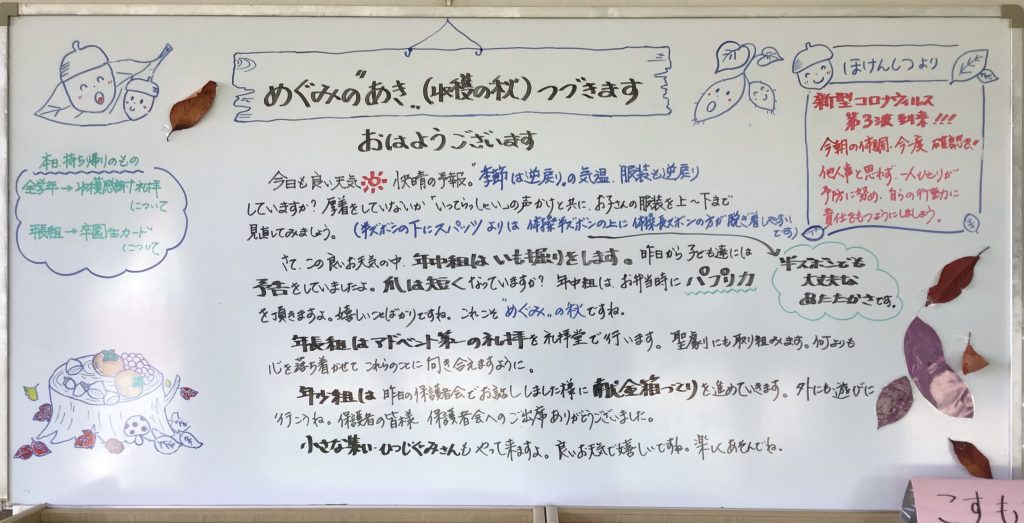 めぐみの"あき"(収穫の秋)つづきます
おはようございます
今日も良い天気 快晴の予報。"季節は逆戻り"の気温、服装も逆戻り
していますか？厚着をしていないか「いってらっしゃい」の声かけと共に、お子さんの服装を上～下まで
見直してみましょう。(半ズボンの下にスパッツよりは体操半ズボンの上に体操長ズボンの方が脱ぎ着しやすいです)
さて、この良いお天気の中、年中組はいも掘りをします。昨日から子ども達には
予告をしていましたよ。爪は短くなっていますか？年中組は、お弁当時にパプリカ
を頂きますよ。嬉しいことばかりですね。これこそ"めぐみ"の秋ですね。
年長組はアドベント第一の礼拝を礼拝堂で行います。聖劇にも取り組みます。何よりも
心を落ち着かせてこれらのことに向き合えますように。
年少組は昨日の保護者会でお話ししました様に献金箱づくりを進めていきます。外にも遊びに
行こうね。保護者の皆様 保護者会へのご出席ありがとうございました。
小さな集い・ひつじぐみさんもやって来ますよ。良いお天気で嬉しいですね。楽しくあそんでね。
本日、持ち帰りのもの
全学年→収穫感謝礼拝
について
年長組→卒園生カード
について
ほけんしつより
新型コロナウィルス
第3波到来!!!
今朝の体調、今一度 確認を!!
他人事と思わず、一人ひとりが
予防に努め、自らの行動に
責任をもつようにしましょう。
半そでこでも
大丈夫な
あたたかさです。
こすも